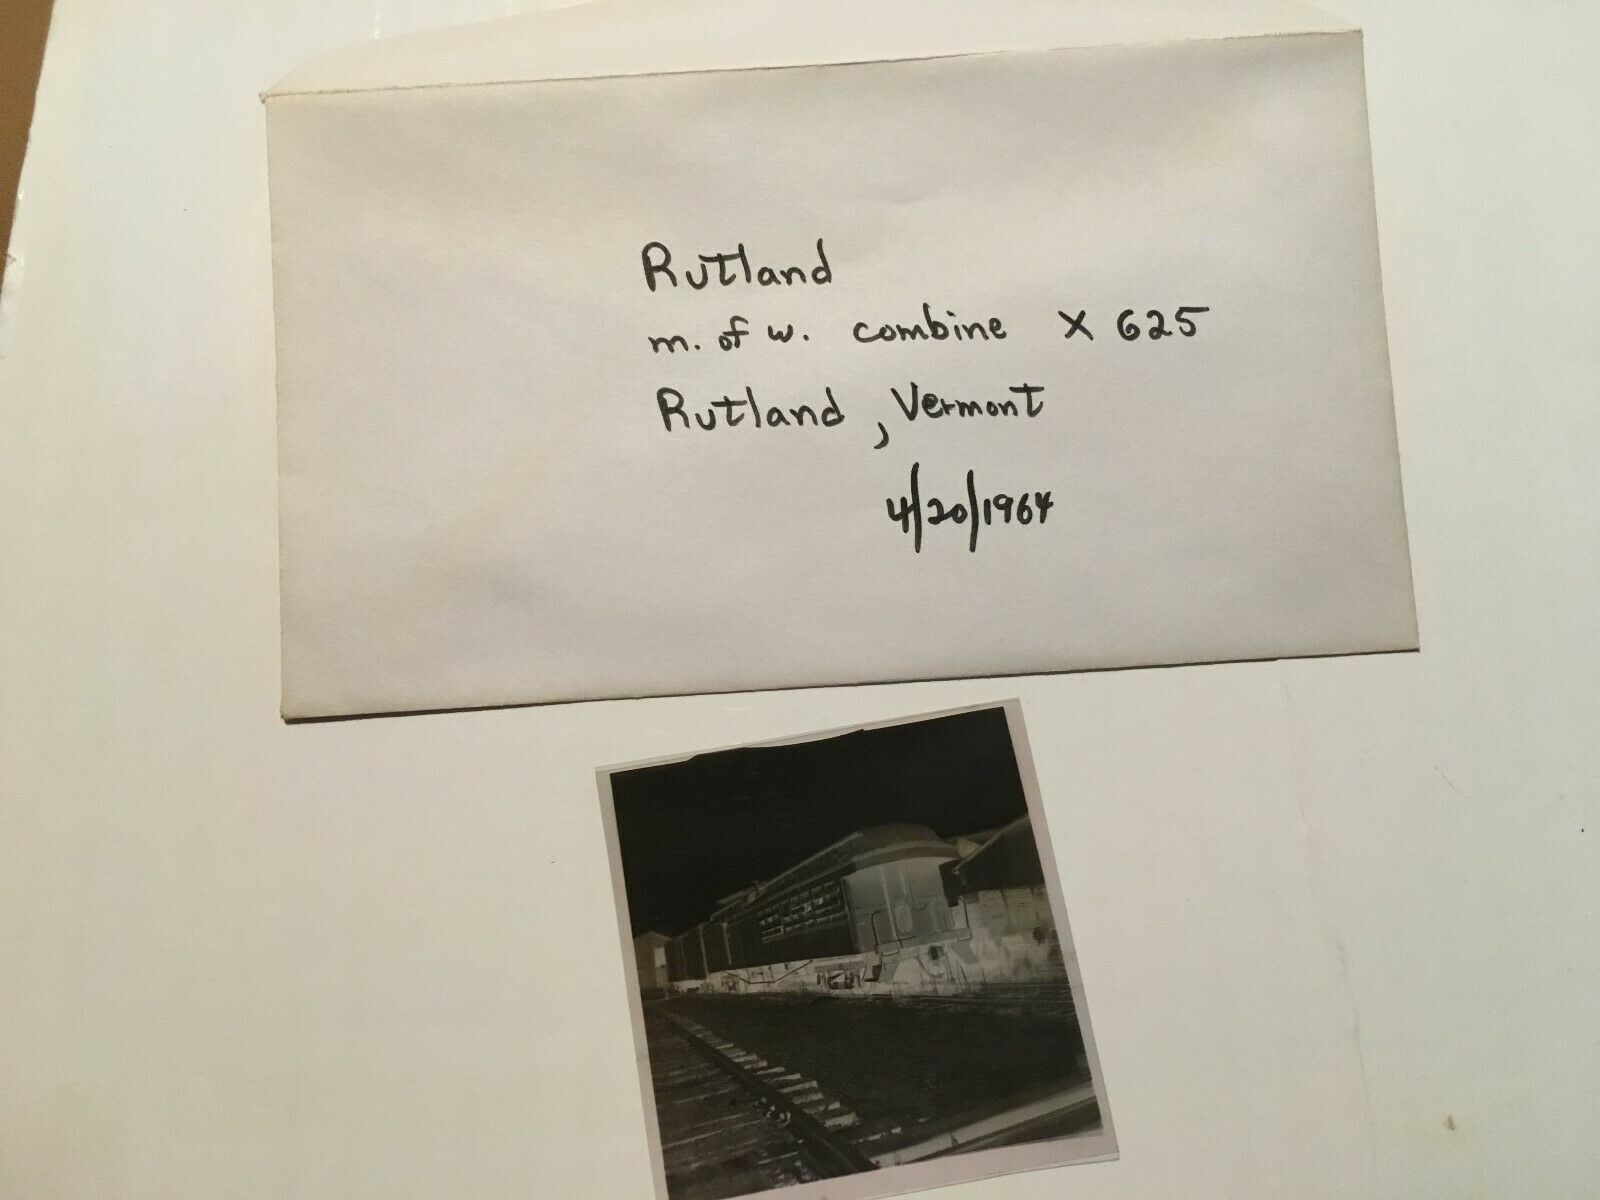 Rutland
m. of w. combine X 625
Rutland, Vermont
4/20/1964